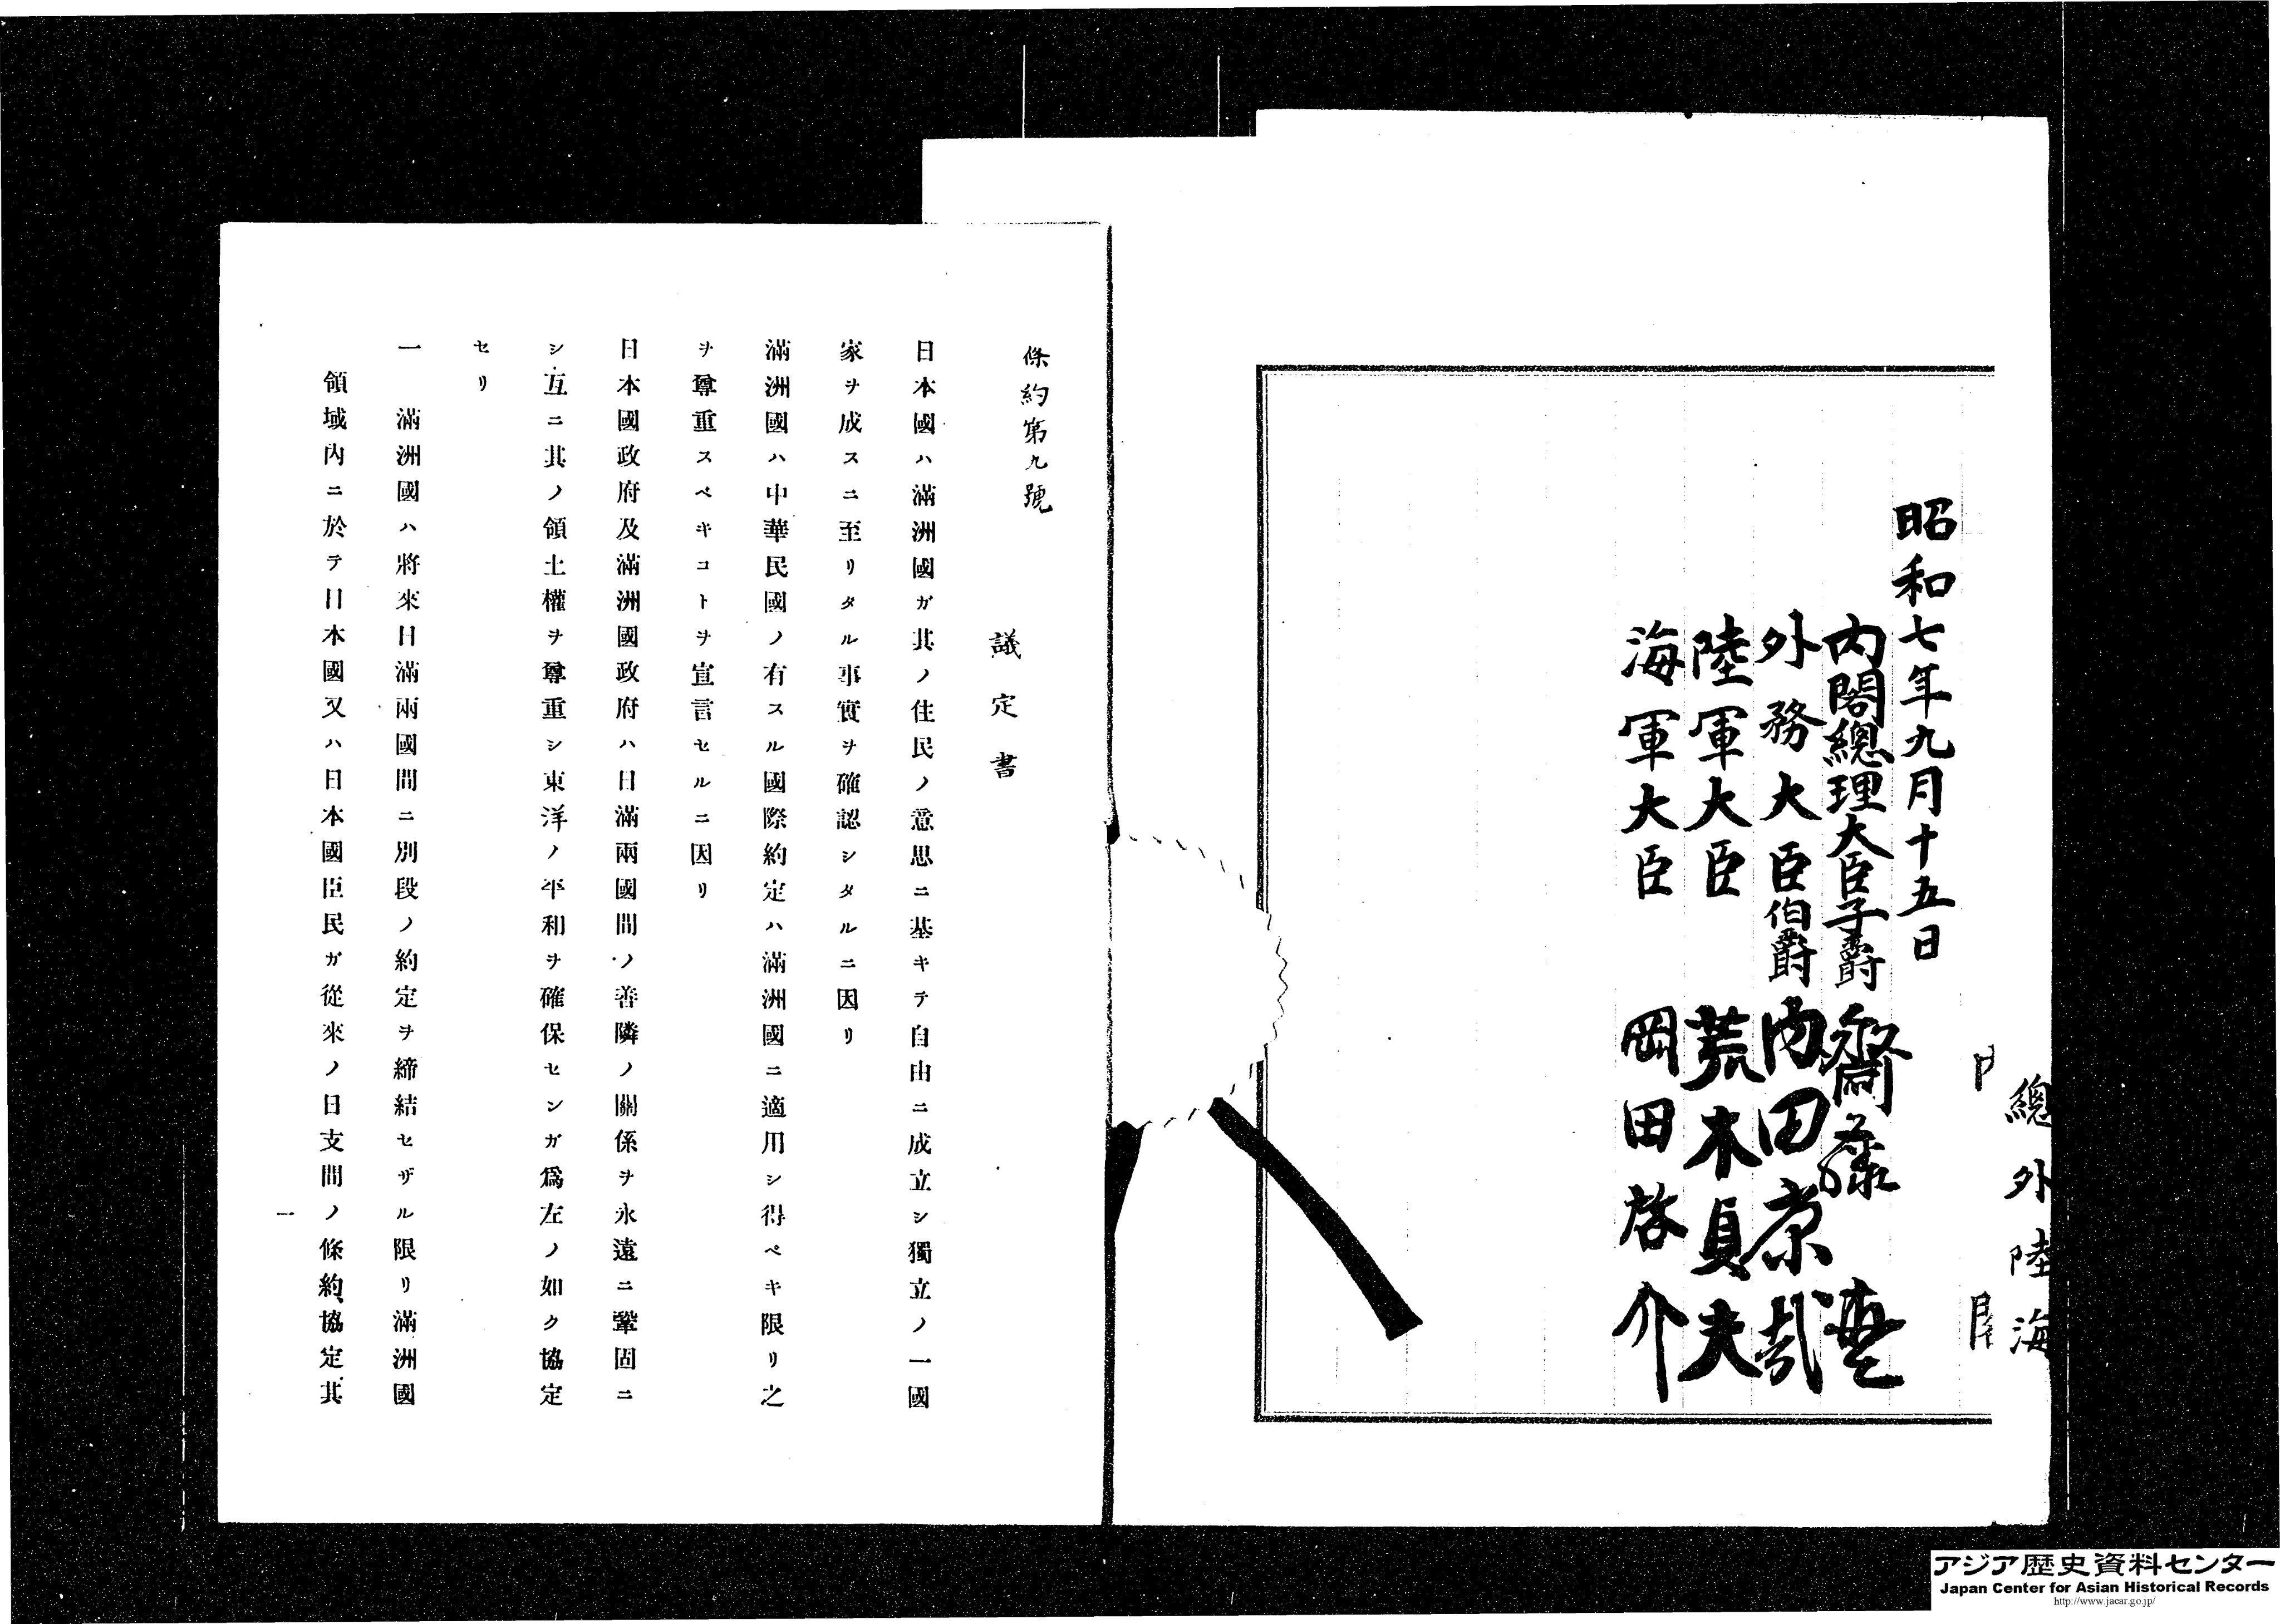 總外陸海
昭和七年九月十五日
内閣總理大臣子爵 齋藤實
外務大臣伯爵 内田康哉
陸軍大臣 荒木貞夫
海軍大臣 岡田啓介
條約第九號
議定書
日本國ハ滿洲國ガ其ノ住民ノ意思ニ基キテ自由ニ成立シ獨立ノ一國
家ヲ成スニ至リタル事實ヲ確認シタルニ因リ
滿洲國ハ中華民國ノ有スル國際約定ハ滿洲國ニ適用シ得ベキ限リ之
ヲ尊重スベキコトヲ宣言セルニ因リ
日本國政府及滿洲國政府ハ日滿兩國間ノ善隣ノ關係ヲ永遠ニ鞏固ニ
シ互ニ其ノ領土權ヲ尊重シ東洋ノ平和ヲ確保センガ爲左ノ如ク協定
セリ
一 滿洲國ハ將來日滿兩國間ニ別段ノ約定ヲ締結セザル限リ滿洲國
領域內ニ於テ日本國又ハ日本國臣民ガ從來ノ日支間ノ條約、協定其
一
アジア歴史資料センター
Japan Center for Asian Historical Records
http://www.jacar.go.jp/